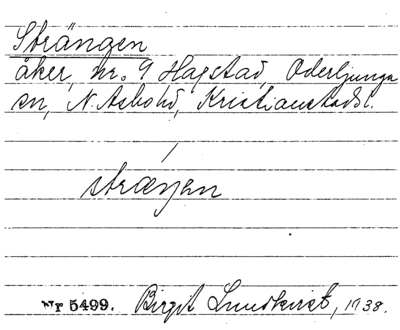 Strängen
åker, nr. 9 Hagstad, Oderljunga
sn, N. Åsbohd, Kristianstads l.
stræŋen
Nr 5499. Birgit Lundkvist, 1938.